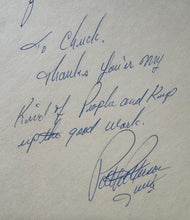 To Chuck.
Thanks You're My
Kind of People and Keep
up the good work.